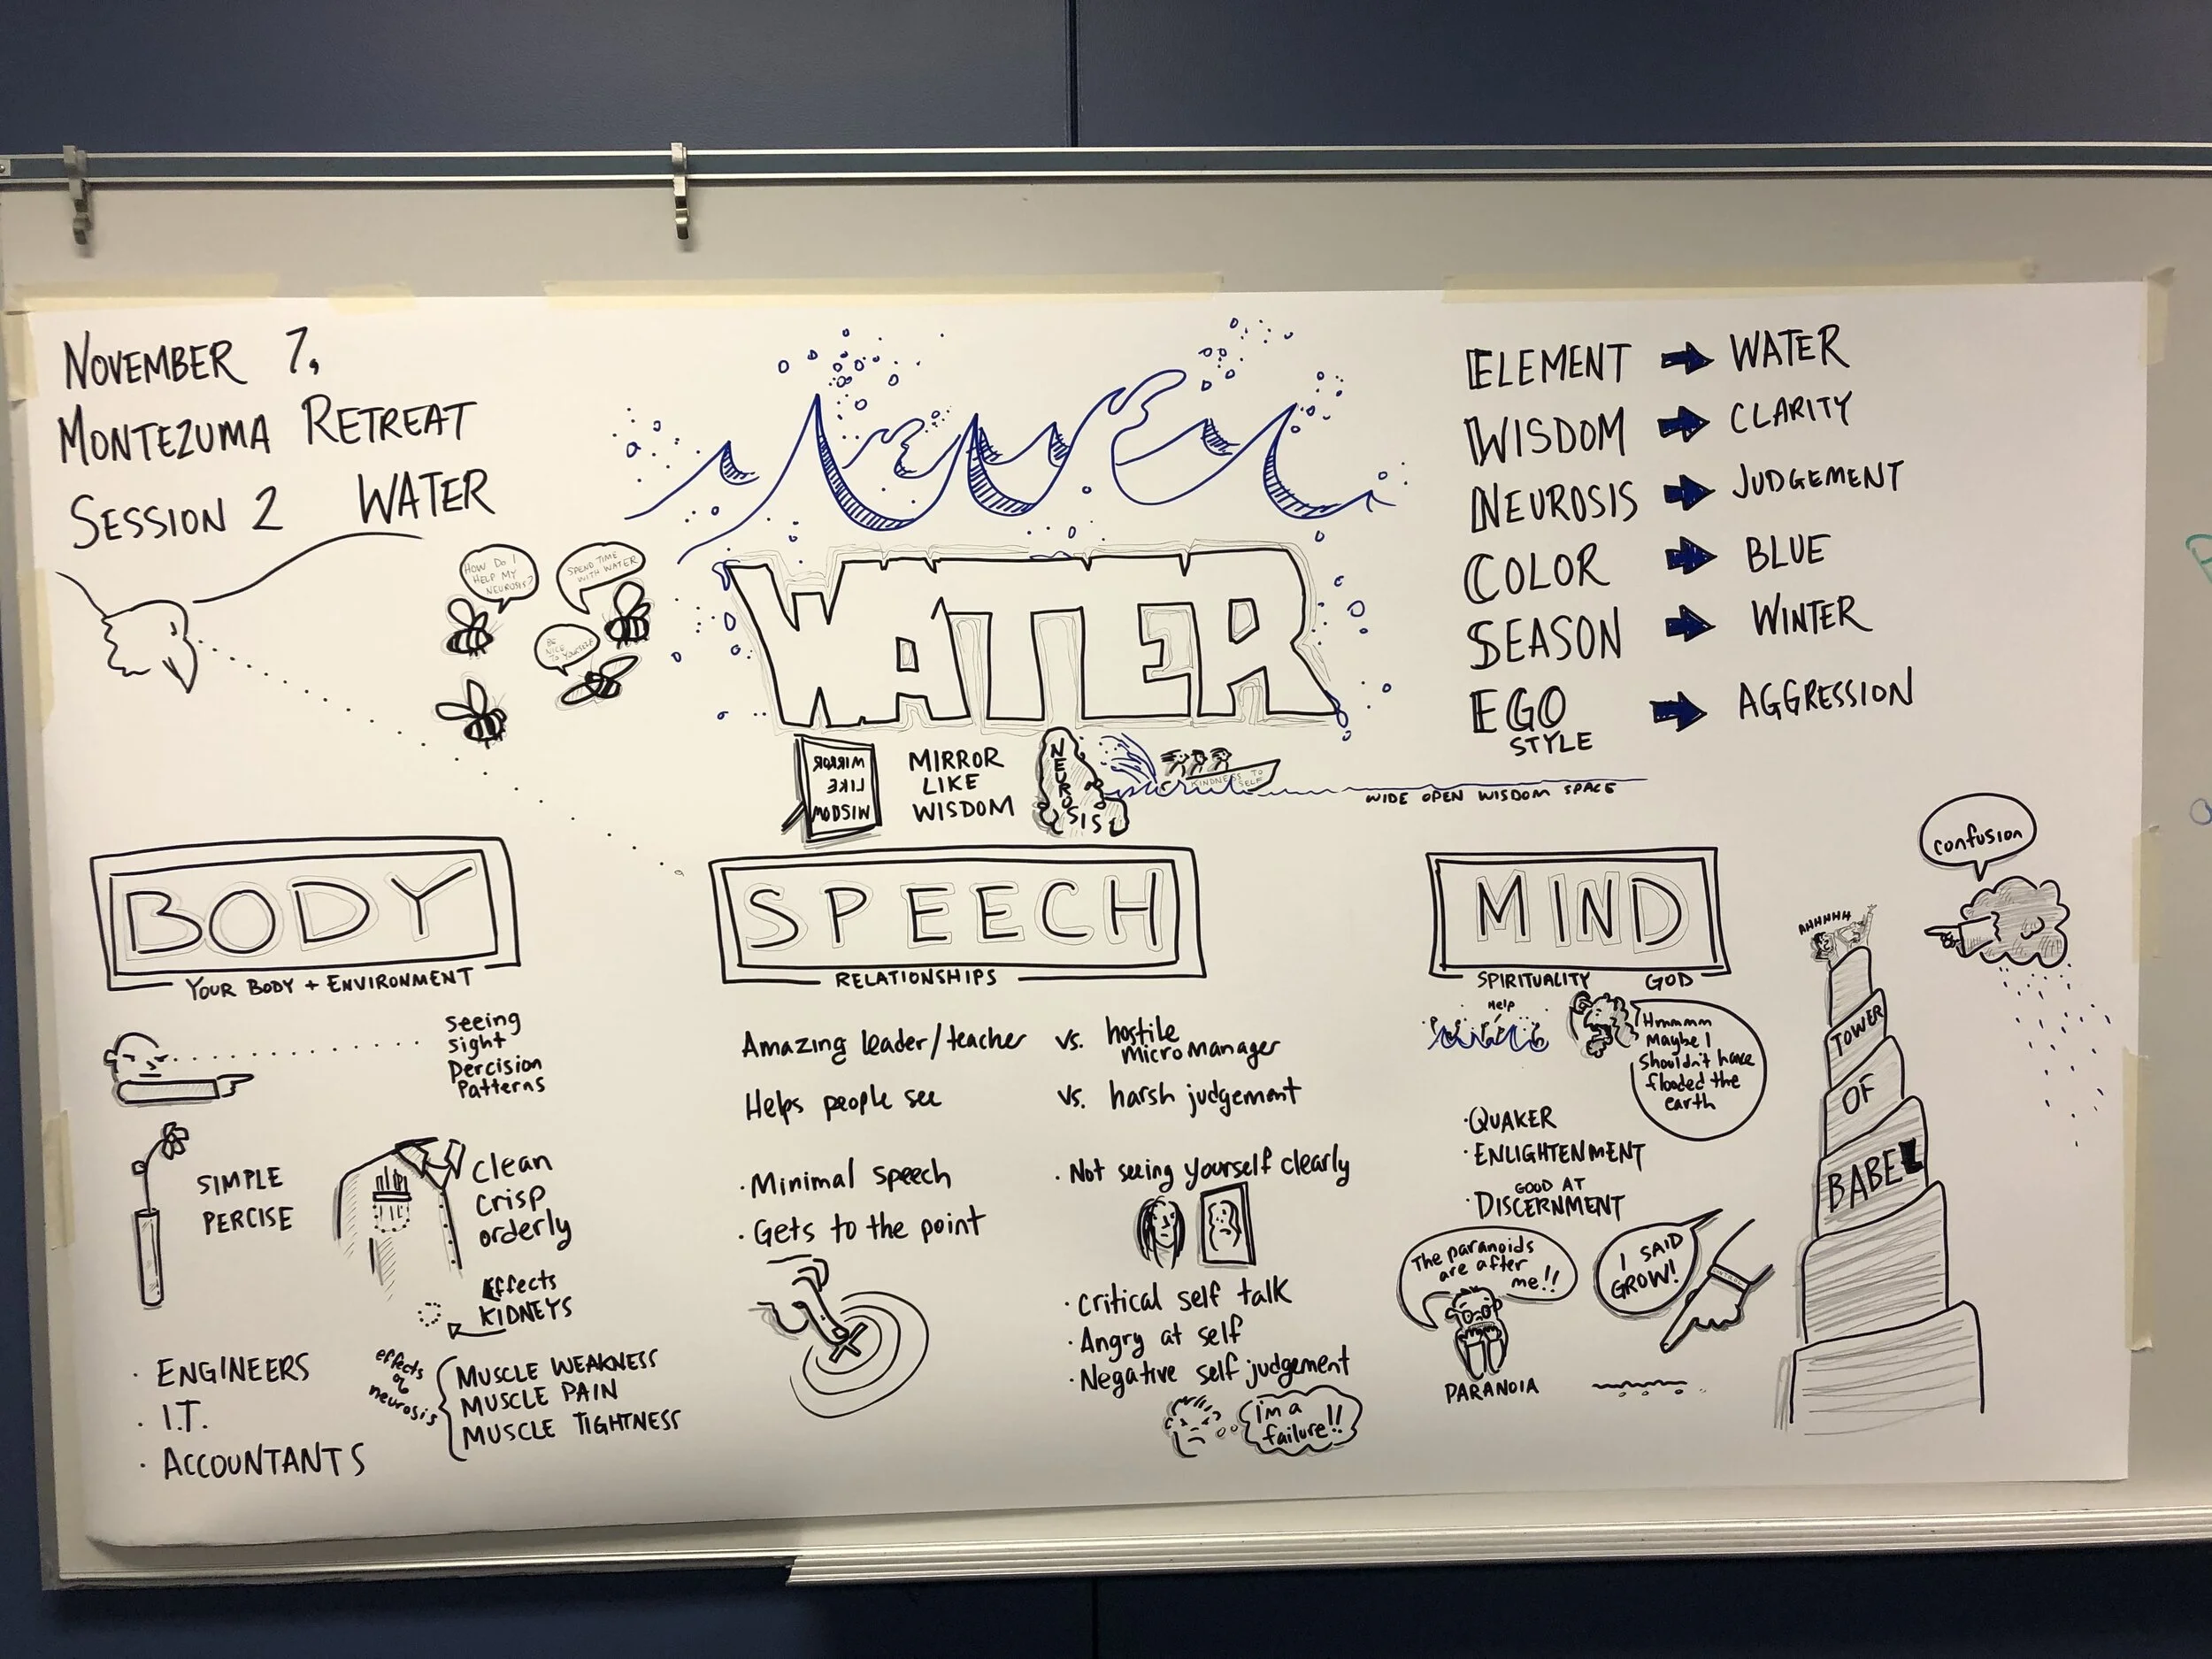 NOVEMBER 7,
MONTEZUMA RETREAT
SESSION 2 WATER
HOW DO I
HELP MY
NEUROSIS?
SPEND TIME
WITH WATER
BE
NICE
TO YOURSELF
WATER
MIRROR
LIKE
WISDOM
MIRROR
LIKE
WISDOM
NEUROSIS
KINDNESS TO
SELF
WIDE OPEN WISDOM SPACE
ELEMENT → WATER
WISDOM → CLARITY
NEUROSIS → JUDGEMENT
COLOR → BLUE
SEASON → WINTER
EGO
STYLE → AGGRESSION
BODY
YOUR BODY + ENVIRONMENT
Seeing
sight
Percision
Patterns
SIMPLE
PERCISE
Clean
Crisp
orderly
Effects
KIDNEYS
effects
of
neurosis
MUSCLE WEAKNESS
MUSCLE PAIN
MUSCLE TIGHTNESS
· ENGINEERS
· I.T.
· ACCOUNTANTS
SPEECH
RELATIONSHIPS
Amazing leader/teacher vs. hostile
micromanager
Helps people see vs. harsh judgement
· Minimal speech
· Gets to the point
· Not seeing yourself clearly
· Critical self talk
· Angry at self
· Negative self judgement
I'm a
failure!!
MIND
SPIRITUALITY GOD
Help
Hmmmm
Maybe I
shouldn't have
flooded the
earth
· QUAKER
· ENLIGHTENMENT
GOOD AT
· DISCERNMENT
The paranoids
are after
me!!
PARANOIA
I SAID
GROW!
AHHHHH
TOWER
OF
BABEL
confusion